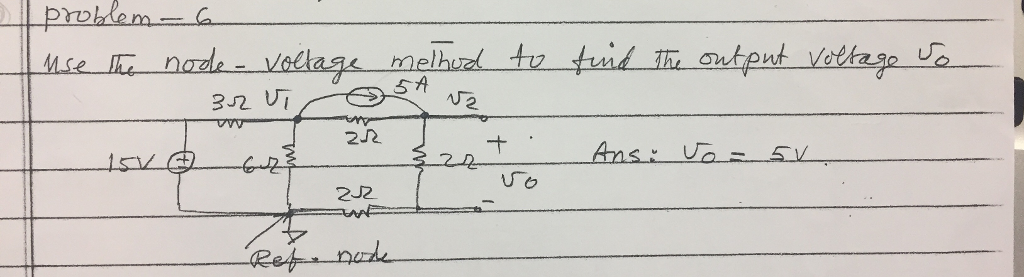 problem - 6
Use The node - voltage method to find The output voltage υo
3Ω υ1 5A υ2
2Ω
15V + 6Ω 2Ω + υo - Ans: υo = 5V
2Ω
Ref. node